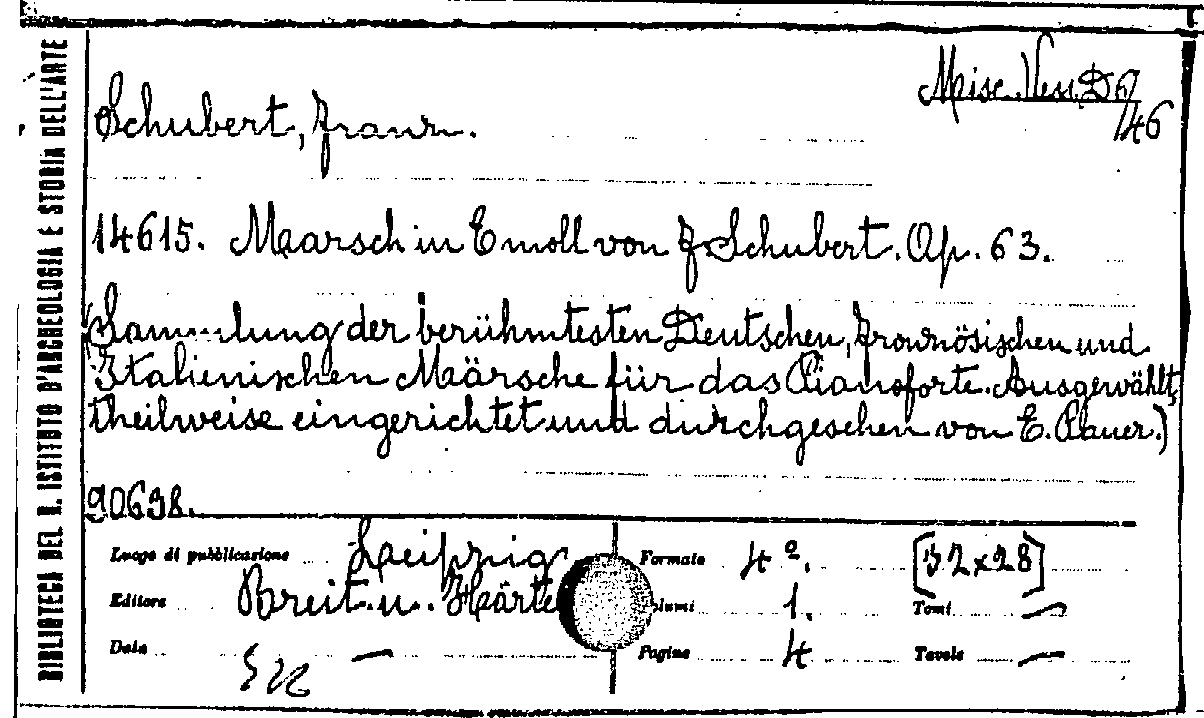 BIBLIOTECA DEL R. ISTITUTO D'ARCHEOLOGIA E STORIA DELL'ARTE
Misc. Vess. D6/46
Schubert, Franz.
14615. Maarsch in E moll von F. Schubert. Op. 63.
(Sammlung der berühmtesten Deutschen, französischen und
Italienischen Märsche für das Pianoforte. Ausgewählt,
theilweise eingerichtet und durchgesehen von E. Pauer.)
90698.
Luogo di pubblicazione Leipzig Formato 4º. [32x28]
Editore Breit. u. Härtel Volumi 1. Tomi —
Data — Pagine 4 Tavole —